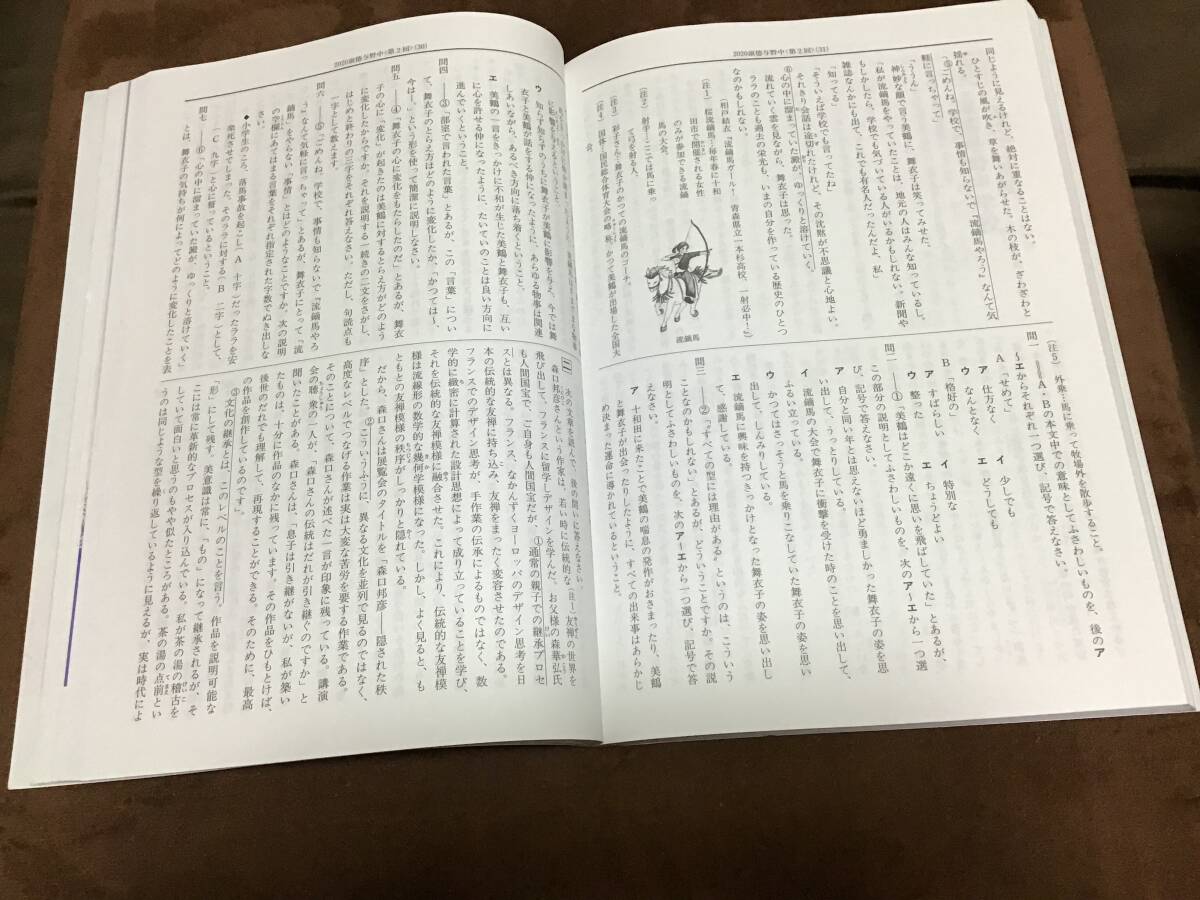 2020淑徳与野中〈第2回〉(31)
同じように見えるけれど、絶対に重なることはない。
ひとすじの風が吹き、草を舞いあがらせた。木の枝が、ざわざわと
揺れる。
「⑤ごめんね。学校で、事情も知らないで『流鏑馬やろう』なんて気
軽に言っちゃって」
「ううん」
神妙な顔で言う美鶴に、舞衣子は笑ってみせた。
「私が流鏑馬をやっていたことは、地元の人はみんな知っているし。
もしかしたら、学校でも気づいている人がいるかもしれない。新聞や
雑誌なんかにも出て、これでも有名人だったんだよ、私」
「知ってる」
「そういえば学校でも言ってたね」
それきり会話は途切れたけれど、その沈黙が不思議と心地よい。
⑥心の中に溜まっていた澱が、ゆっくりと溶けていく。
流れていく雲を見ながら、舞衣子は思った。
ララのことも過去の栄光も、いまの自分を作っている歴史のひとつ
なのかもしれない。
(相戸結衣『流鏑馬ガール! 青森県立一本杉高校、一射必中!』)
(注1) 桜流鏑馬…毎年春に十和
田市で開催される女性
のみが参加できる流鏑
馬の大会。
(注2) 射手…ここでは馬に乗っ
て弓を射る人。
(注3) 彩さん…舞衣子のかつての流鏑馬のコーチ。
(注4) 国体…国民総合体育大会の略称。かつて美鶴が出場した全国大
会。
流鏑馬
(注5) 外乗…馬に乗って牧場外を散歩すること。
問一 ――A・Bの本文中での意味としてふさわしいものを、後のア
〜エからそれぞれ一つ選び、記号で答えなさい。
A 「せめて」
ア 仕方なく イ 少しでも
ウ なんとなく エ どうしても
B 「格好の」
ア すばらしい イ 特別な
ウ 整った エ ちょうどよい
問二 ――①「美鶴はどこか遠くに思いを飛ばしていた」とあるが、
この部分の説明としてふさわしいものを、次のア〜エから一つ選
び、記号で答えなさい。
ア 自分と同い年とは思えないほど勇ましかった舞衣子の姿を思
い出して、うっとりしている。
イ 流鏑馬の大会で舞衣子に衝撃を受けた時のことを思い出して、
ふるい立っている。
ウ かつてはさっそうと馬を乗りこなしていた舞衣子の姿を思い
出して、しんみりしている。
エ 流鏑馬に興味を持つきっかけとなった舞衣子の姿を思い出し
て、感謝している。
問三 ――②「〝すべての型には理由がある〟というのは、こういう
ことなのかもしれない」とあるが、どういうことですか。その説
明としてふさわしいものを、次のア〜エから一つ選び、記号で答
えなさい。
ア 十和田に来たことで美鶴の喘息の発作がおさまったり、美鶴
と舞衣子が出会ったりしたように、すべての出来事はあらかじ
め決まった運命に導かれているということ。
2020淑徳与野中〈第2回〉(30)
ウ 知らず知らずのうちに舞衣子が美鶴に影響を与え、今では舞
衣子と美鶴が話をする仲になったように、あらゆる物事は関連
しあいながら、あるべき方向に落ち着くということ。
エ 美鶴の一言をきっかけに不和が生じた美鶴と舞衣子も、互い
に心を許せる仲になったように、たいていのことは良い方向に
進んでいくということ。
問四 ――③「部室で言われた言葉」とあるが、この「言葉」につい
て、舞衣子のとらえ方はどのように変化したか、「かつては〜、
今は〜。」という形を使って簡潔に説明しなさい。
問五 ――④「舞衣子の心に変化をもたらしたのだ」とあるが、舞衣
子の心に「変化」が起きたのは美鶴に対するとらえ方がどのよう
に変化したからですか。それを説明する一続きの二文をさがし、
はじめと終わりの三字をそれぞれ答えなさい。ただし、句読点も
一字として数えます。
問六 ――⑤「ごめんね。学校で、事情も知らないで『流鏑馬やろ
う』なんて気軽に言っちゃって」とあるが、舞衣子にとって「流
鏑馬」をやらない「事情」とはどのようなことですか。次の説明
の空欄にあてはまる言葉をそれぞれ指定された字数でぬき出しな
さい。
◆小学生のころ、落馬事故を起こし(A 十字)だったララを安
楽死させてしまった。そのララに対する(B 二字)として、
(C 九字)と心に誓っているということ。
問七 ――⑥「心の中に溜まっていた澱が、ゆっくりと溶けていく」
とは、舞衣子の気持ちが何によってどのように変化したことを表
二 次の文章を読んで、後の問いに答えなさい。
森口邦彦さんという作家は、若い時に伝統的な(注1)友禅の世界を
飛び出して、フランスに留学しデザインを学んだ。お父様の森華弘氏
も人間国宝で、ご自身も人間国宝だが、①通常の親子での継承プロセ
スとは異なる。フランス、なかんずくヨーロッパのデザイン思考を日
本の伝統的な友禅に持ち込み、友禅をまったく変容させたのである。
フランスでのデザイン思考が、手作業の伝承によるものではなく、数
学的に緻密に計算された設計思想によって成り立っていることを学び、
それを伝統的な友禅模様に融合させた。これにより、伝統的な友禅模
様は流線形の数学的な幾何学模様になった。しかし、よく見ると、も
ともとの友禅模様の秩序がしっかりと隠れている。
だから、森口さんは展覧会のタイトルを「森口邦彦――隠された秩
序」とした。②こういうふうに、異なる文化を並列で見るのではなく、
高度なレベルでつなげる作業は実は大変な苦労を要する作業である。
そのことについて、森口さんが述べた一言が印象に残っている。講演
会の聴衆の一人が、「森口さんの伝統はだれが引き継ぐのですか」と
聞いたことがある。森口さんは、「息子は引き継がないが、私が築い
たものは、十分に作品のなかに残っています。その作品をひもとけば、
後世のだれでも理解して、再現することができる。そのために、最高
の作品を創作しているのです」。
③文化の継承とは、このレベルのことを言う。作品を説明可能な
「形」にして残す。美意識は常に、「もの」になって継承されるが、そ
こには常に革新的なプロセスが入り込んでいる。私が茶の湯の稽古を
していて面白いと思うのもやや似たところがある。茶の湯の点前とい
うのは同じような型を繰り返しているように見えるが、実は時代によ